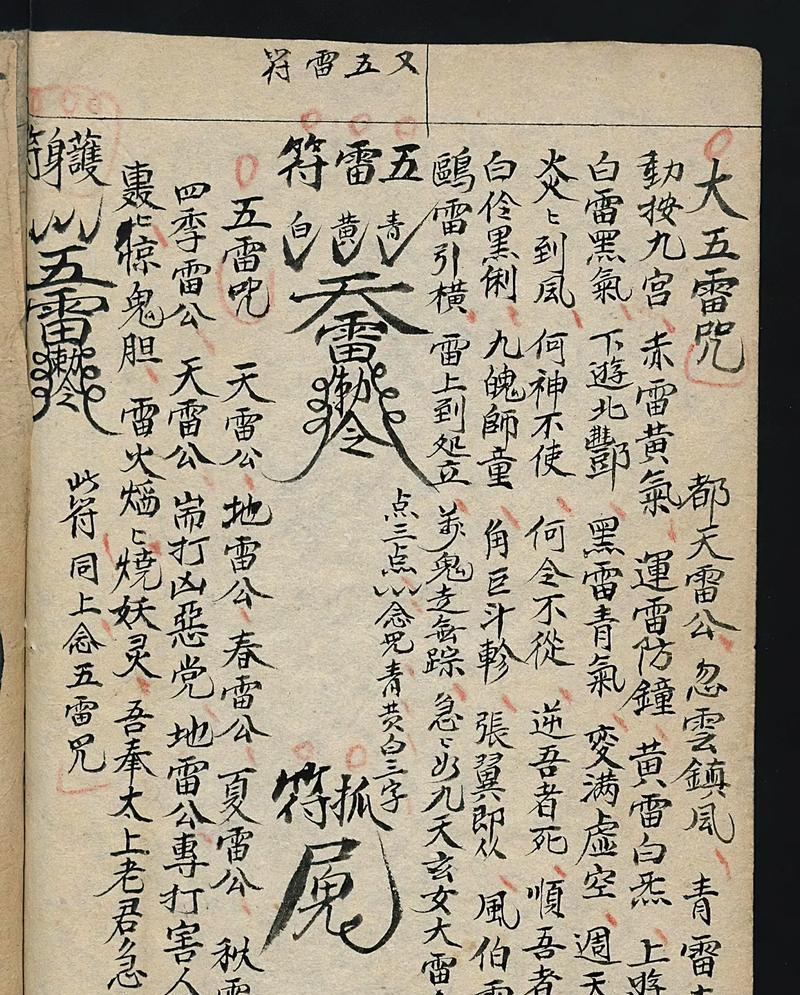 又五雷符
大五雷咒 都天雷公 忽雲鎮風 青雷
動按九宮 赤雷黃氣 運雷防鐘 黃雷白炁 上
白雷黑氣 下遊北酆 黑雷青氣 变满虛空 週天
炎〻到風 何神不使 何令不從 逆吾者死 順吾者
白伶黑俐 九魄師童 角巨斗軫 張翼即从 風伯
鷗雷引橫 雷上到処立 萬鬼走無踪 急〻如九天玄女大雷
五雷符
青 黃 白
天雷勅令
点三点 念咒青黄白三字
抓符
五雷咒 天雷公 地雷公 春雷公 夏雷公 秋雷
四季雷公 天雷公 耑打凶惡党 地雷公專打害人
轟〻惊鬼胆 雷火焰〻燒妖灵 吾奉太上老君急
護身符
五雷勅令
此符同上念五雷咒